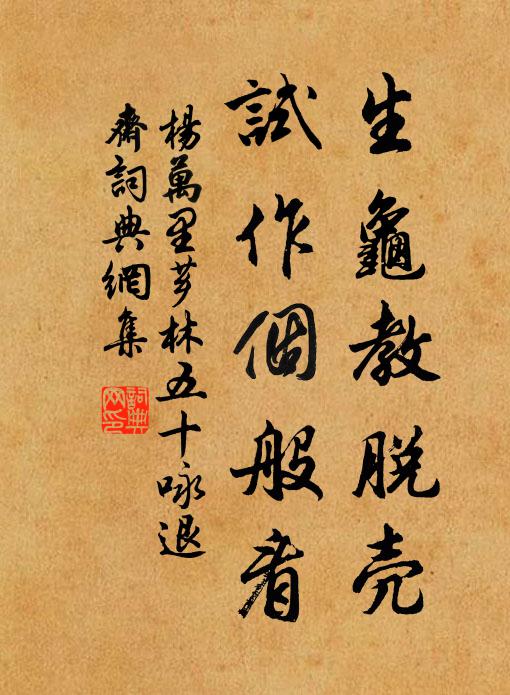 生龜教脱壳
試作個般看
楊萬里芗林五十咏退
齋詞典網集
詞典網印